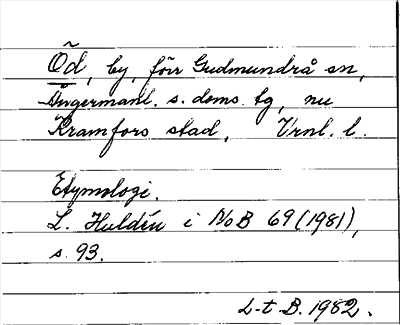 Öd, by, förr Gudmundrå sn,
Ångermanl. s. doms. tg, nu
Kramfors stad, Vrnl. l.
Etymologi.
L. Huldén i NoB 69 (1981),
s. 93.
L-t B. 1982.